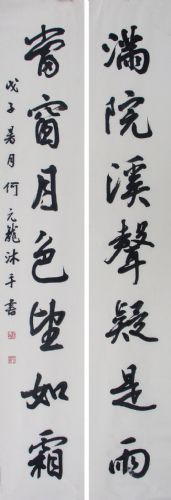 滿院溪聲疑是雨
當窗月色望如霜
戊子暑月何元龍沐手書